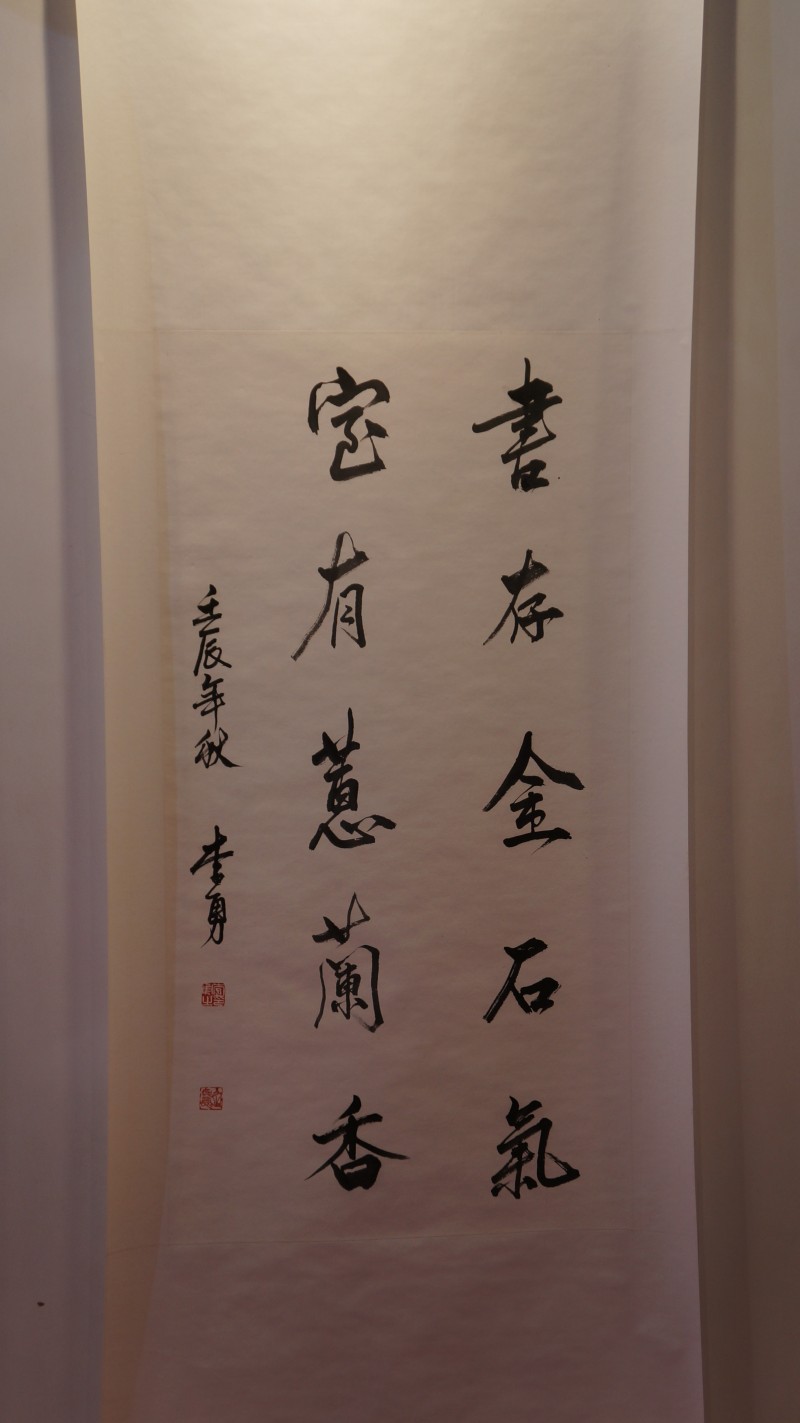 書存金石氣
室有蕙蘭香
壬辰年秋 李勇